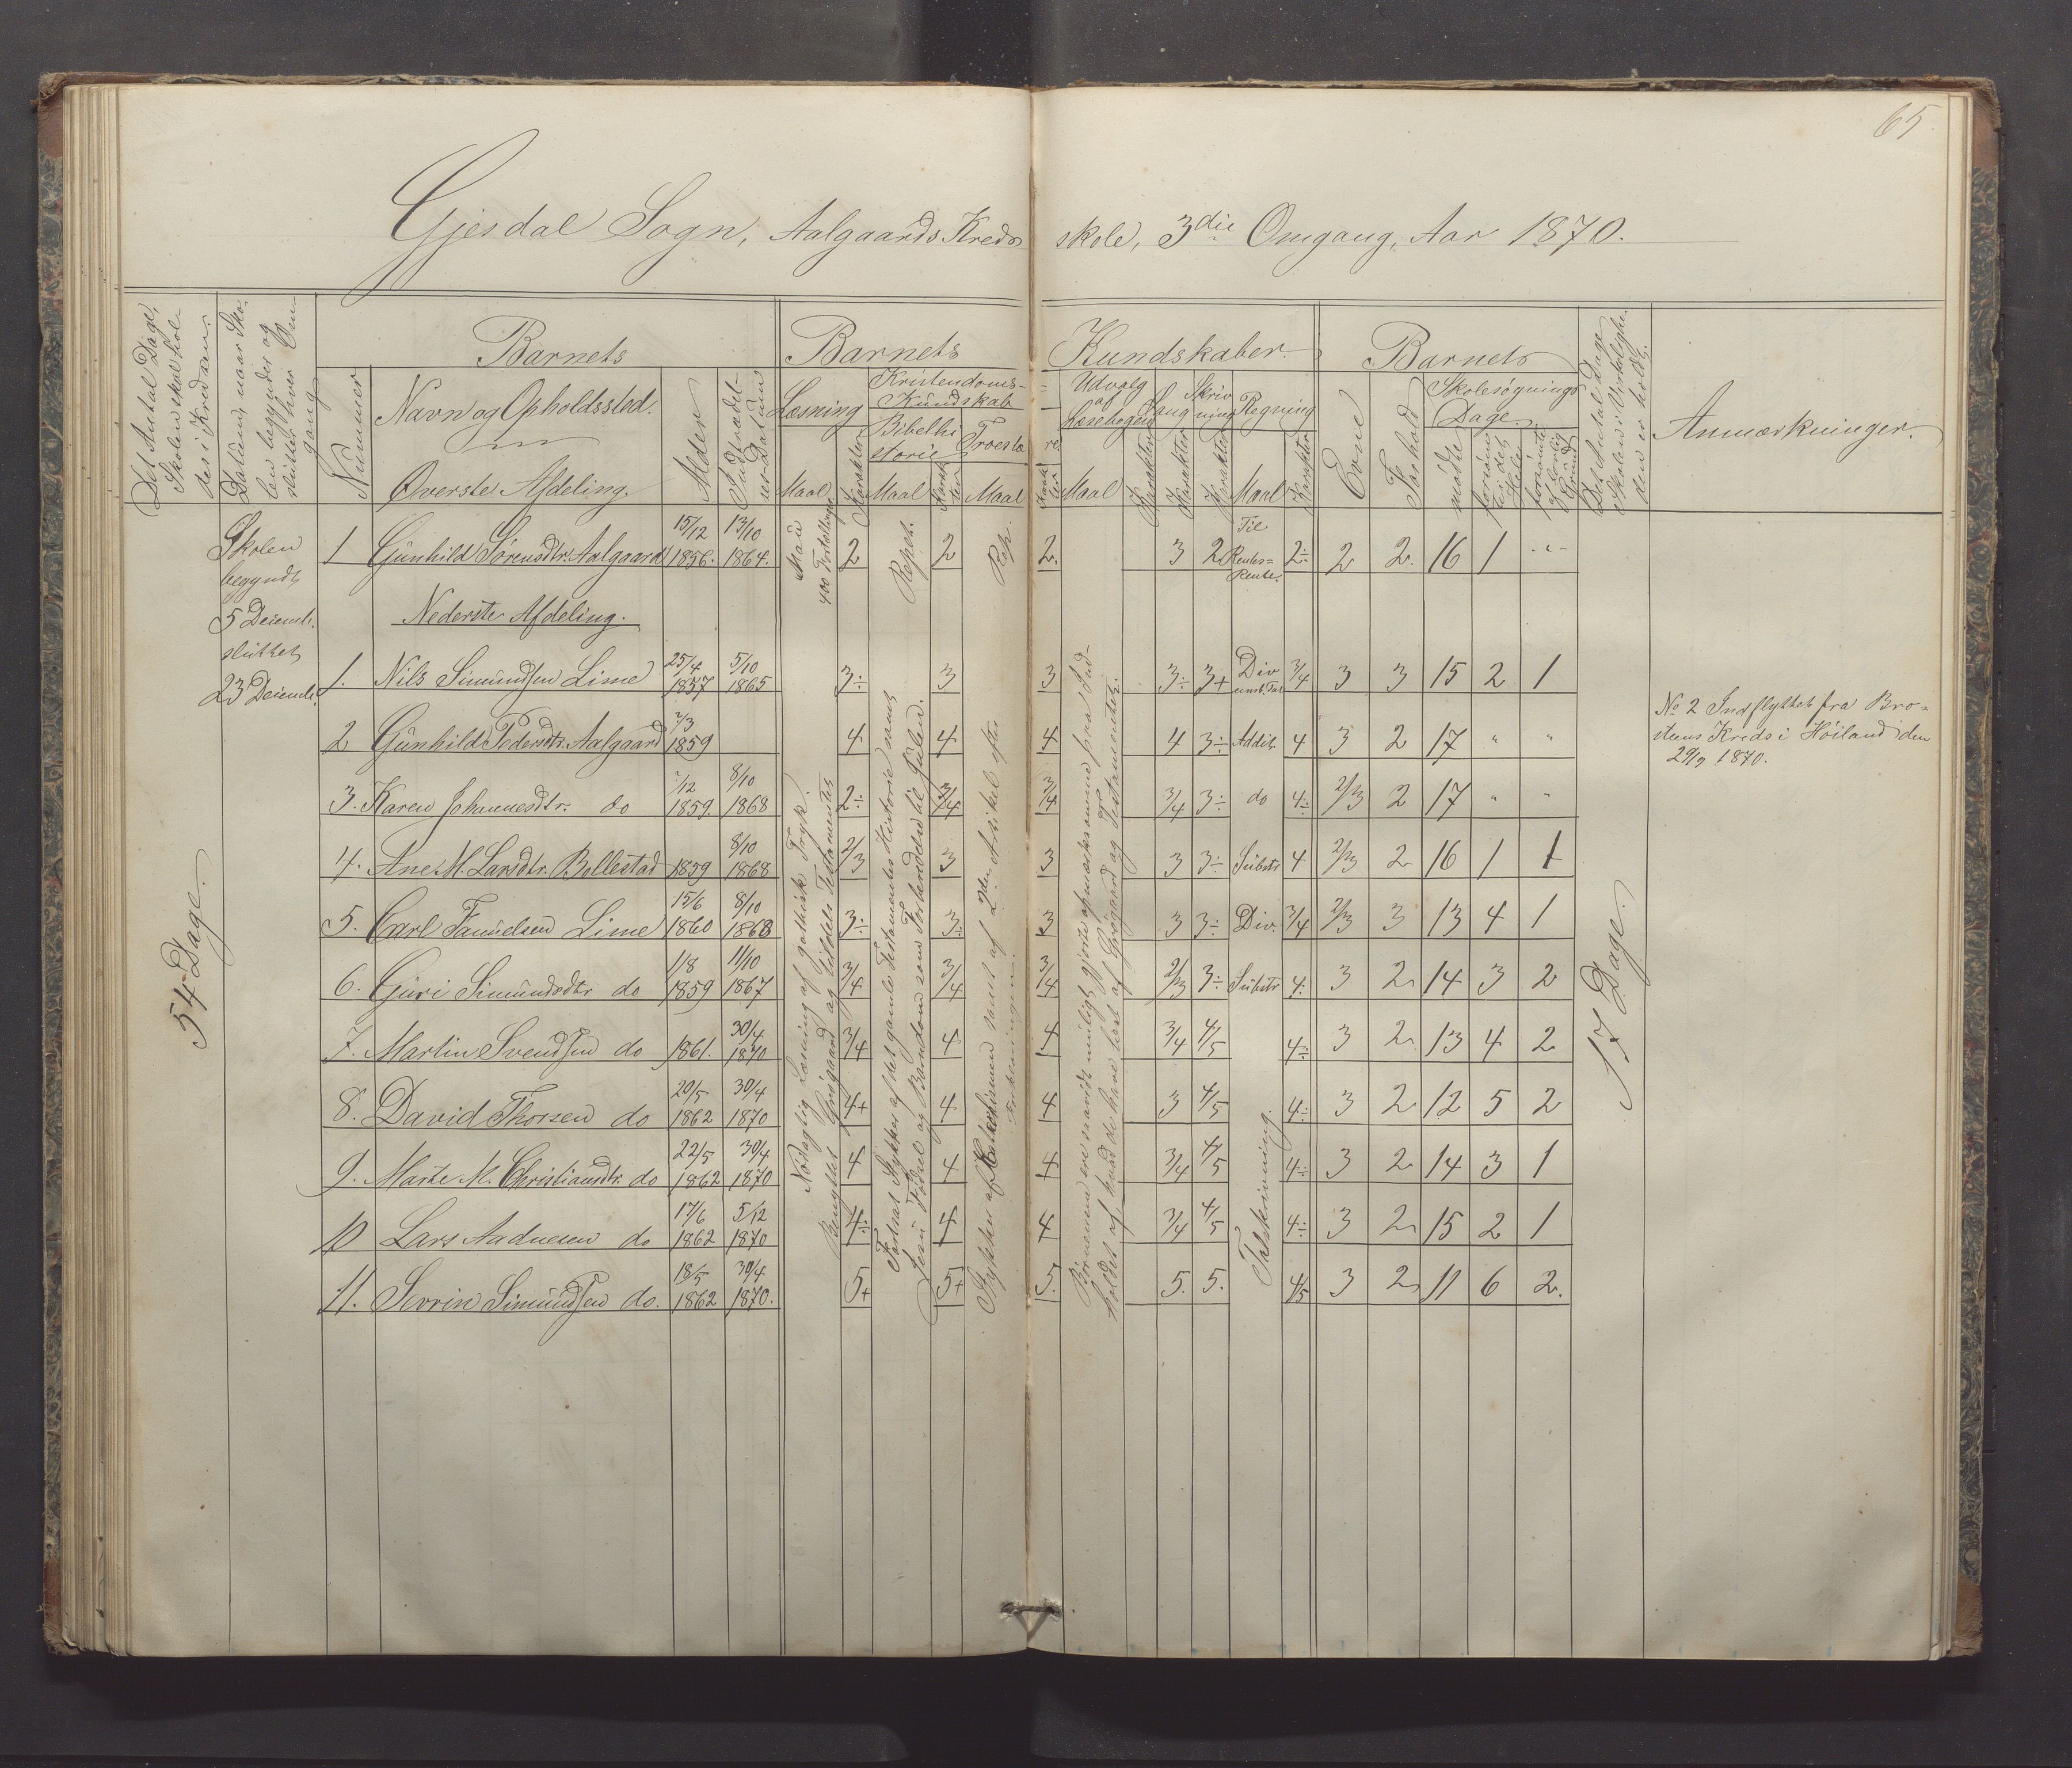 65.
Gjesdal Sogn, Aalgaards Kreds skole, 3die Omgang, Aar 1870.
Det Antal Dage, Skolen skal holdes i Kredsen.
Datum, naar Skolen begynder og sluttes hver Omgang
Barnets
Nummer
Navn og Opholdssted.
Øverste Afdeling.
Alder
Indtrædelses Datum
Barnets Kundskaber.
Læsning
Maal
Karakter
Kristendoms-Kundskab
Bibelhistorie
Maal
Karakter
Troeslære
Maal
Karakter
Udvalg af Læsebogen
Maal
Karakter
Sang
Karakter
Skrivning
Karakter
Regning
Maal
Karakter
Barnets
Evne
Forhold
Skolesøgnings Dage.
mødte
forsømte i det Hele
forsømte af lovlig Grund
Det Antal Dage Skolen i Virkeligheden er holdt.
Anmærkninger.
Skolen
begyndt
5 Decemb.
sluttet
23 Decemb.
54 Dage.
1 Gunhild Sørensdtr. Aalgaard 15/12 1856. 13/10 1864. 2 Repet. 2 Rep. 2. 3 2 Til Rentes-Rente. 2÷ 2 2. 16 1 "
400 Fortællinger
Nederste Afdeling.
1. Nils Simundsen Lime 25/4 1857 5/10 1865 3÷ 3 3 3÷ 3+ Div 3/4 3 3 15 2 1
2 Gunhild Pedersdtr. Aalgaard 7/3 1859 4 4 4 4 3÷ Addit. 4 3 2 17 " "
3. Karen Johannesdtr. do 7/12 1859. 8/10 1868 2÷ 3/4 3/4 3/4 3÷ do 4÷ 2/3 2 17 " "
4. Ane M. Larsdtr. Bollestad 1859 8/10 1868 2/3 3 3 3 3÷ Substr 4 2/3 2 16 1 1
5. Carl Samuelsen Lime 15/6 1860 8/10 1868 3÷ 3÷ 3 3 3÷ Div. 3/4 2/3 3 13 4 1
6. Guri Simundsdtr do 1/8 1859 11/10 1867 3/4 3/4 3/4 2/3 3÷ Substr 4. 3 2 14 3 2
7. Martin Svendsen do 1861. 30/4 1870 3/4 4 4 3/4 4/5 4÷ 3 2 13 4 2
8. David Thorsen do 20/5 1862 30/4 1870 4+ 4 4 3 4/5 4÷ 3 2 12 5 2
9. Marte M. Christiansdtr. do 22/5 1862 30/4 1870 4 4 4 3/4 4/5 4÷ 3 2 14 3 1
10 Lars Aadnesen do 17/6 1862 5/12 1870 4÷ 4 4 3/4 4/5 4÷ 3 2 15 2 1
11. Serrin Simundsen do. 18/5 1862 30/4 1870. 5+ 5+ 5. 5. 5. 4/5 3 2 11 6 2.
Nøiagtig Læsning af gothisk Tryk.
Benyttet Grøgaard og tildels Testamentet
Fortsat Stykker af det gamle Testamentes Historie samt
Jesu Fødsel og Barndom som Forberedelse til Julen.
Stykker af Katekismen samt af 2den Artikel efter
Forklaringen.
Børnenene ere saavidt muligt gjorte opmærksomme paa Ind-
holdet af, hvad de have læst af Grøgaard og Testamentet.
Talskrivning.
17 Dage.
No 2 Indflyttet fra Bro-
steens Kreds i Høiland den
29/9 1870.